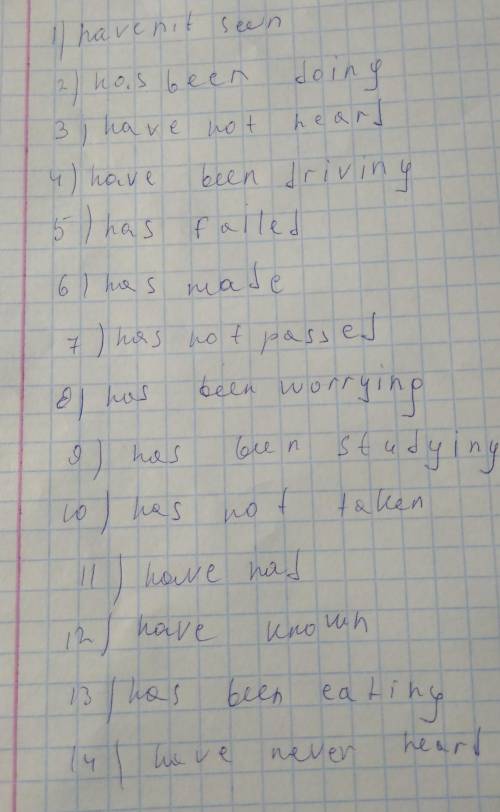 1) haven't seen
2) has been doing
3) have not heard
4) have been driving
5) has failed
6) has made
7) has not passed
8) has been worrying
9) has been studying
10) has not taken
11) have had
12) have known
13) has been eating
14) have never heard